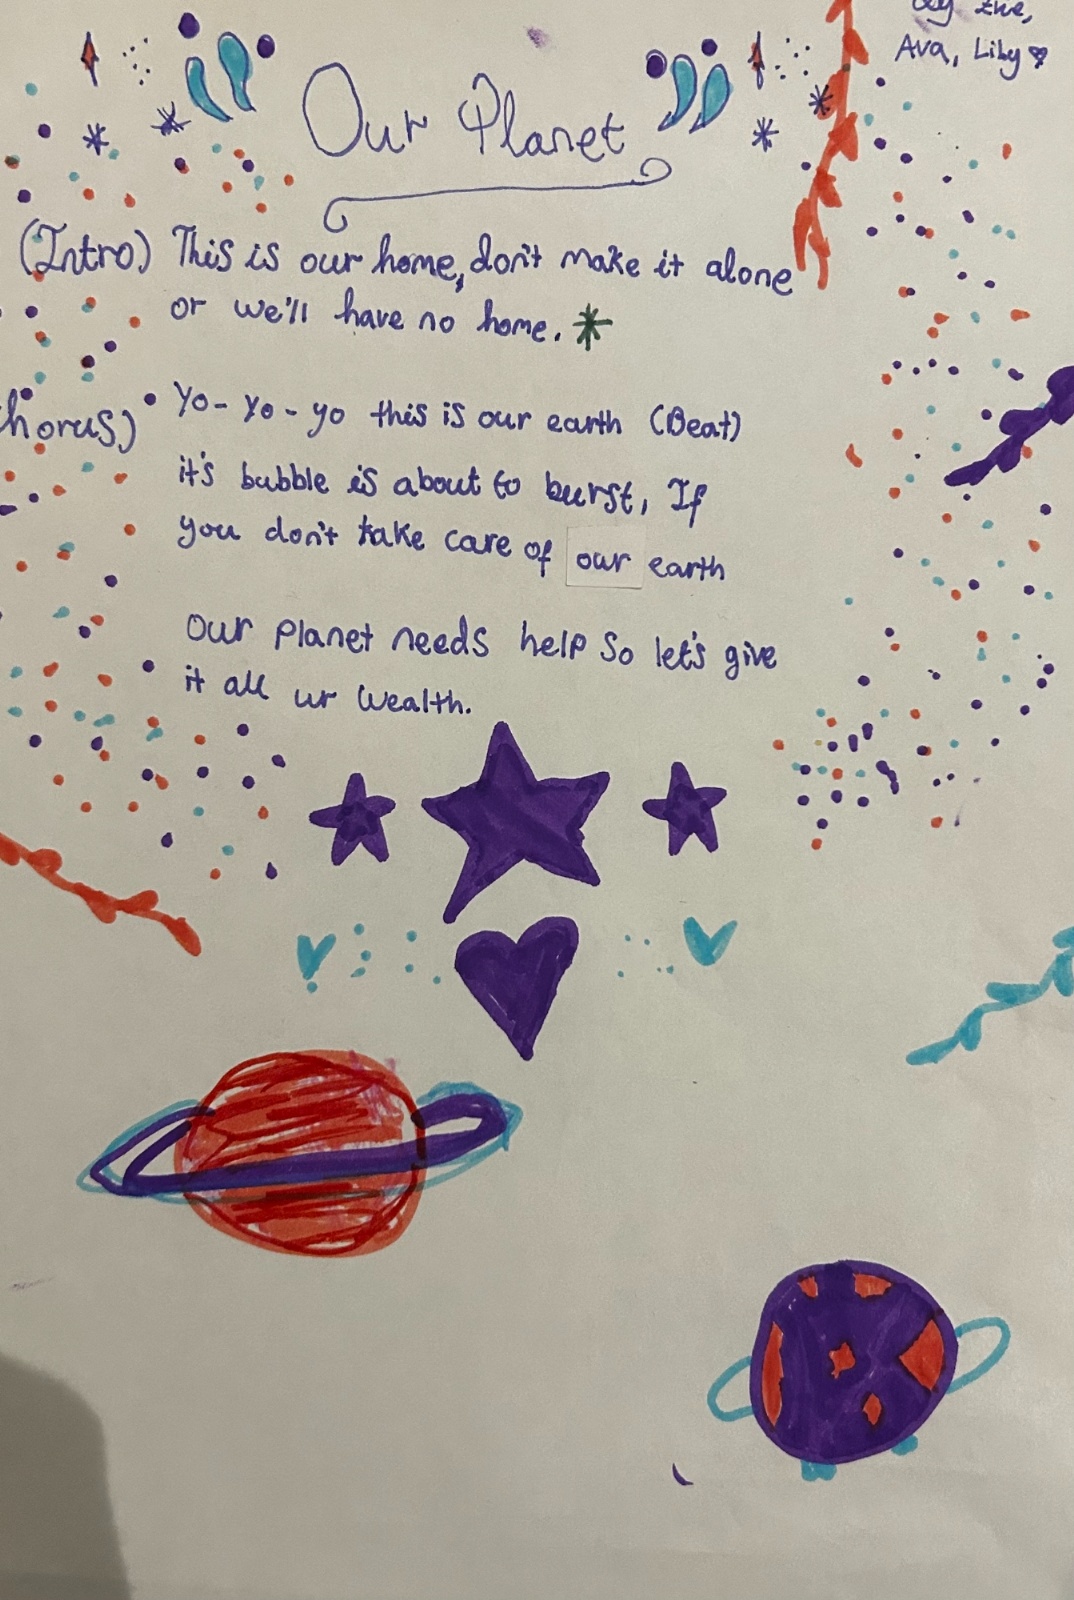 By Zhe,
Ava, Liby
“Our Planet”
(Intro) This is our home, don't make it alone
or we'll have no home. *
horus) Yo - Yo - yo this is our earth (Beat)
it's bubble is about to burst, If
you don't take care of our earth
Our Planet needs help so let's give
it all ur wealth.